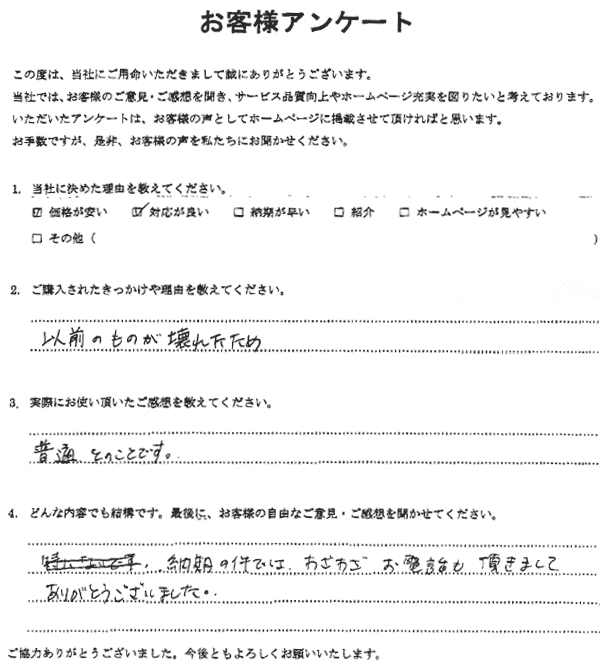 お客様アンケート
この度は、当社にご用命いただきまして誠にありがとうございます。
当社では、お客様のご意見・ご感想を聞き、サービス品質向上やホームページ充実を図りたいと考えております。
いただいたアンケートは、お客様の声としてホームページに掲載させて頂ければと思います。
お手数ですが、是非、お客様の声を私たちにお聞かせください。
1. 当社に決めた理由を教えてください。
☑ 価格が安い ☑ 対応が良い □ 納期が早い □ 紹介 □ ホームページが見やすい
□ その他 ( )
2. ご購入されたきっかけや理由を教えてください。
以前のものが壊れたため
3. 実際にお使い頂いたご感想を教えてください。
普通 とのことです。
4. どんな内容でも結構です。最後に、お客様の自由なご意見・ご感想を聞かせてください。
納期の件では、わざわざ お電話も 頂きまして
ありがとうございました。
ご協力ありがとうございました。今後ともよろしくお願いいたします。